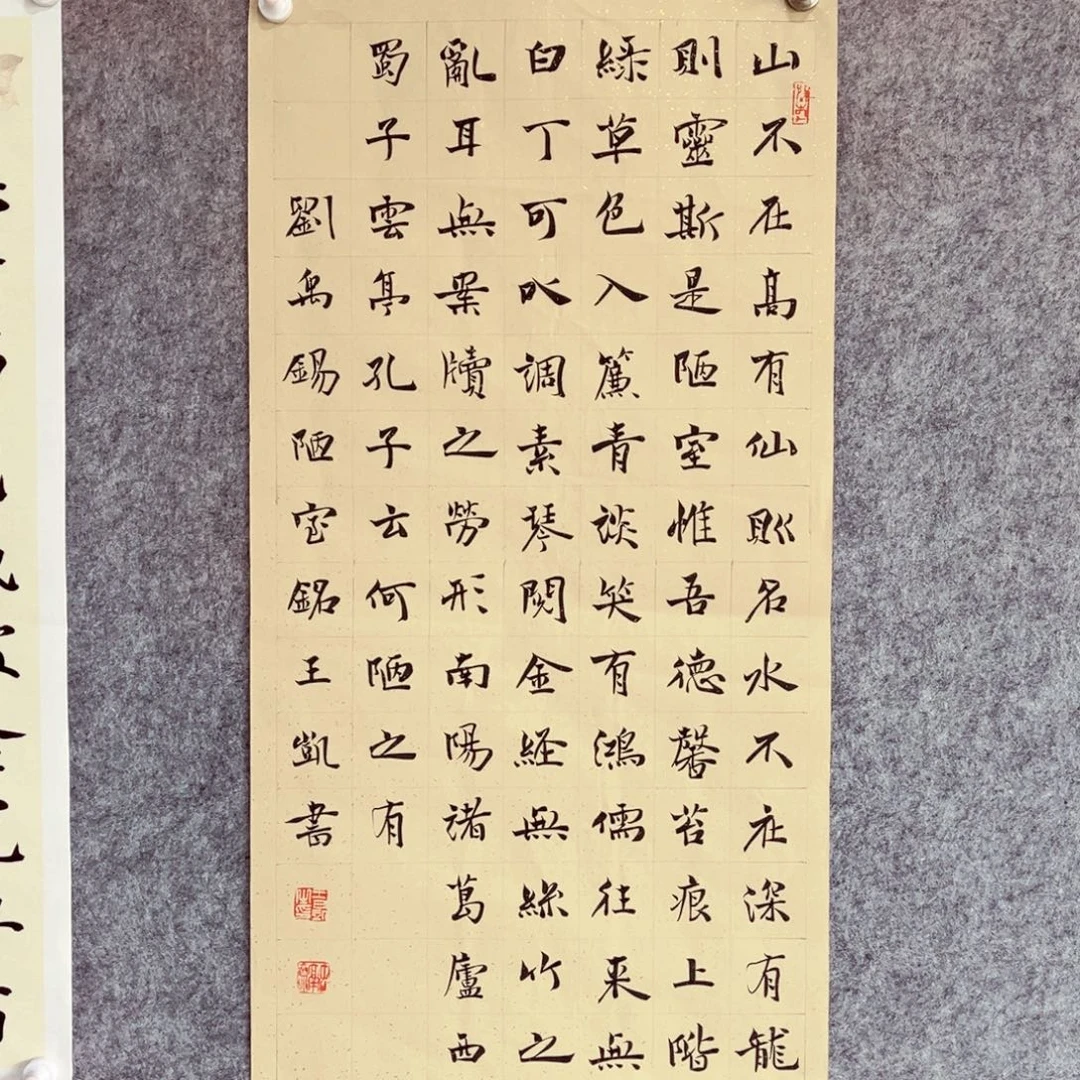 山不在高有仙則名水不在深有龍
則靈斯是陋室惟吾德馨苔痕上階
綠草色入簾青談笑有鴻儒往来無
白丁可以調素琴閱金経無絲竹之
亂耳無案牘之勞形南陽諸葛廬西
蜀子雲亭孔子云何陋之有
劉禹錫陋室銘王凱書